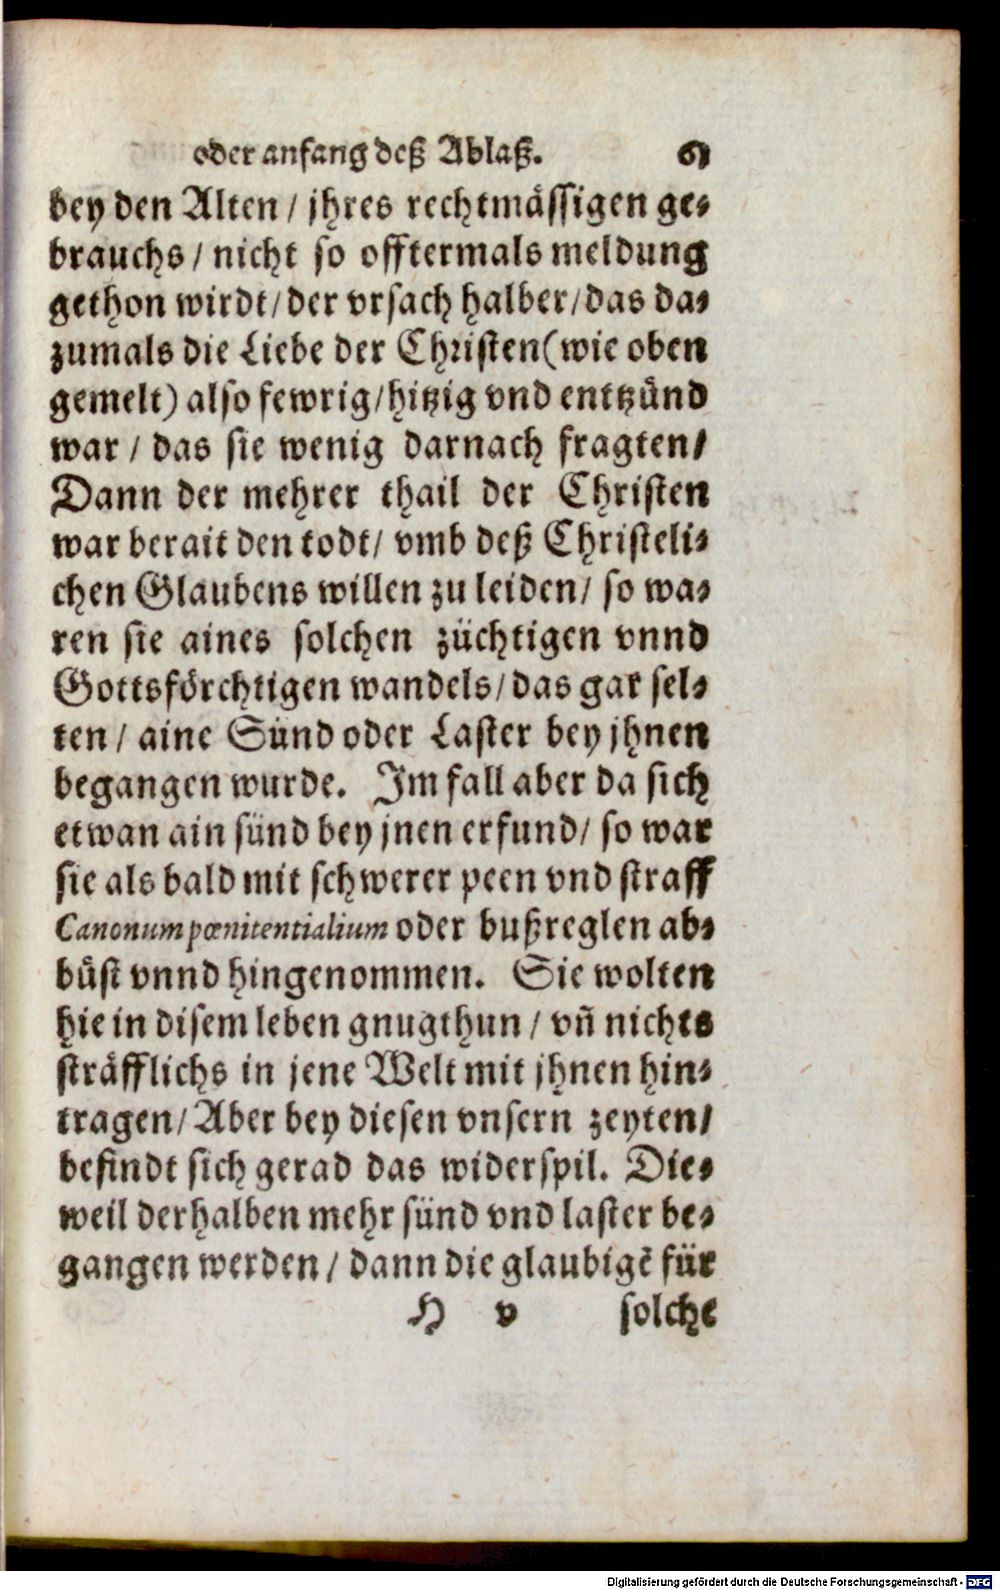 oder anfang deß Ablaß. 61
bey den Alten / jhres rechtmässigen ge-
brauchs / nicht so offtermals meldung
gethon wirdt / der vrsach halber / das da-
zumals die Liebe der Christen (wie oben
gemelt) also fewrig / hitzig vnd entzünd
war / das sie wenig darnach fragten /
Dann der mehrer thail der Christen
war berait den todt / vmb deß Christeli-
chen Glaubens willen zu leiden / so wa-
ren sie aines solchen züchtigen vnnd
Gottsförchtigen wandels / das gar sel-
ten / aine Sünd oder Laster bey jhnen
begangen wurde. Im fall aber da sich
etwan ain sünd bey jnen erfund / so war
sie als bald mit schwerer peen vnd straff
Canonum pœnitentialium oder bußreglen ab-
büst vnnd hingenommen. Sie wolten
hie in disem leben gnugthun / vñ nichts
sträfflichs in jene Welt mit jhnen hin-
tragen / Aber bey diesen vnsern zeyten /
befindt sich gerad das widerspil. Die-
weil derhalben mehr sünd vnd laster be-
gangen werden / dann die glaubigẽ für
H v solche
Digitalisierung gefördert durch die Deutsche Forschungsgemeinschaft - DFG